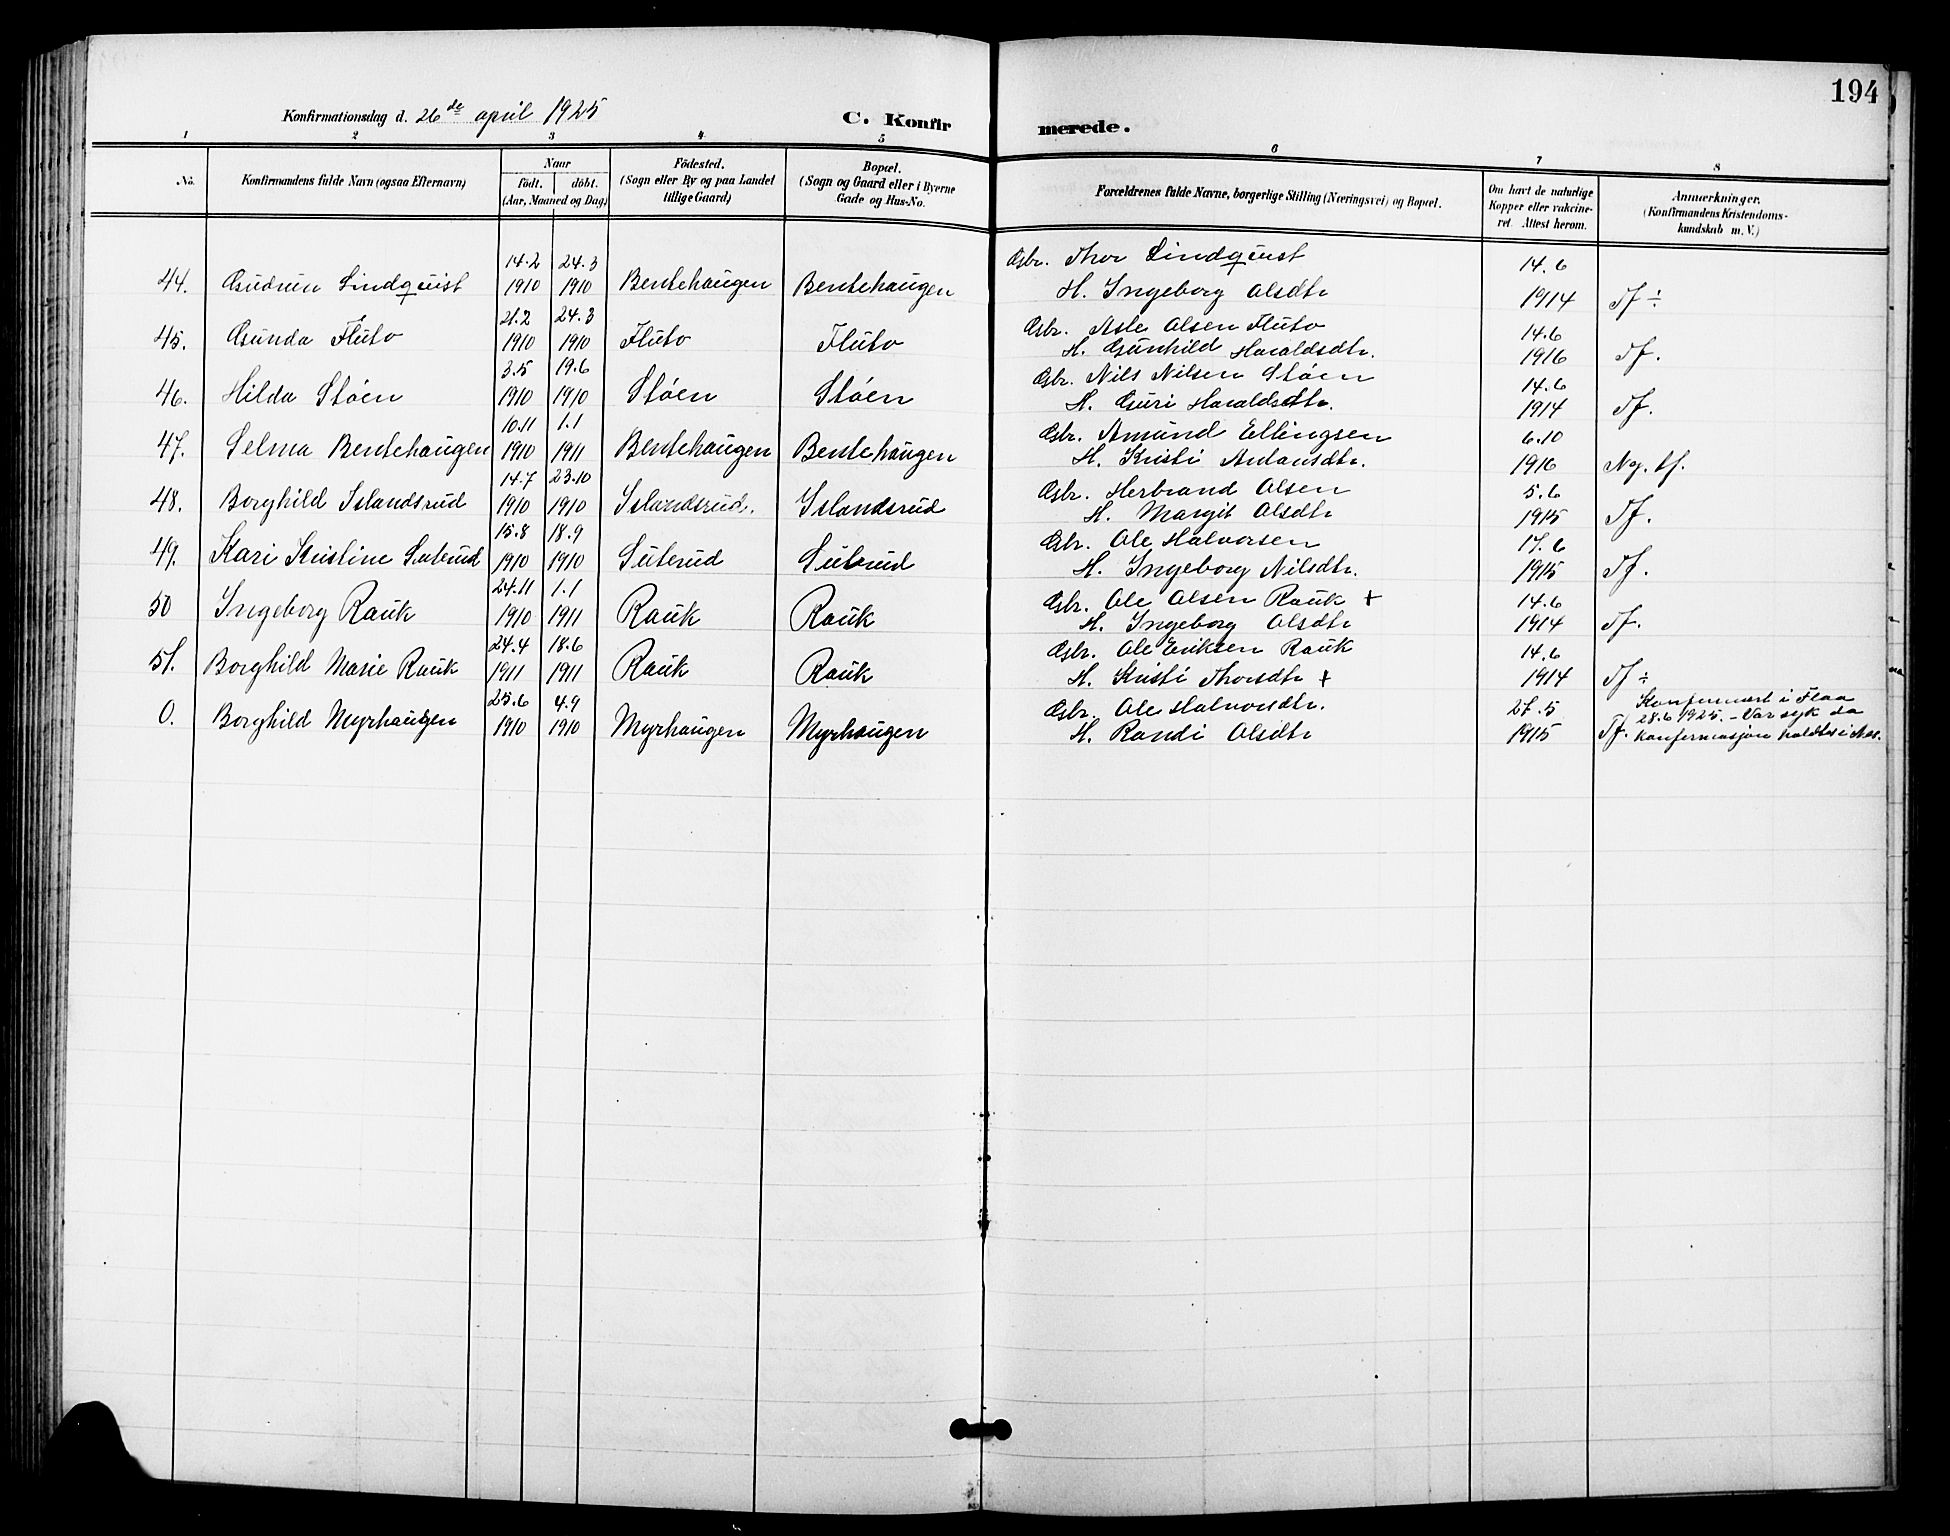 194
Konfirmationsdag d. 26de april 1925
C. Konfirmerede.
1 2 3 4 5 6 7 8
No. Konfirmandens fulde Navn (ogsaa Efternavn) Naar født. døbt. (Aar, Maaned og Dag) Födested. (Sogn eller By og paa Landet tillige Gaard) Bopæl. (Sogn og Gaard eller i Byerne Gade og Hus-No. Forældrenes fulde Navne, borgerlige Stilling (Næringsvei) og Bopæl. Om havt de naturlige Kopper eller vakcineret. Attest herom. Anmærkninger. (Konfirmandens Kristendomskundskab m. V.)
14.2 24.3 Gbr. Thor Lindquist 14.6
44. Gudrun Lindquist 1910 1910 Bentehaugen Bentehaugen H. Ingeborg Olsdtr 1914 Tf ÷
21.2 24.3 Gbr. Asle Olsen Fluto 14.6
45. Gunda Fluto 1910 1910 Fluto Fluto H. Gunhild Haraldsdtr. 1916 Tf.
3.5 19.6 Gbr. Nils Nilsen Støen 14.6
46. Hilda Støen 1910 1910 Støen Støen H. Guri Haraldsdtr. 1914 Tf.
10.11 1.1 Gbr. Amund Ellingsen 6.10
47. Selma Bentehaugen 1910 1911 Bentehaugen Bentehaugen H. Kristi Antonsdtr. 1916 Ng. tf.
14.7 23.10 Gbr. Herbrand Olsen 5.6
48. Borghild Islandsrud 1910 1910 Islandsrud. Islandsrud H. Margit Olsdtr 1915 Tf.
15.8 18.9 Gbr. Ole Halvorsen 17.6
49. Kari Kristine Suterud 1910 1910 Suterud Suterud H. Ingeborg Nilsdtr. 1915 Tf.
24.11 1.1 Gbr. Ole Olsen Rauk + 14.6
50 Ingeborg Rauk 1910 1911 Rauk Rauk H. Ingeborg Olsdtr 1914 Tf.
24.4 18.6 Gbr. Ole Eriksen Rauk 14.6
51. Borghild Marie Rauk 1911 1911 Rauk Rauk H. Kristi Thorsdtr + 1914 Tf ÷
25.6 4.9 Gbr. Ole Halvorsdtr. 27.5 Konfermert i Flaa 28.6 1925. – Var syk da
0. Borghild Myrhaugen 1910 1910 Myrhaugen Myrhaugen H. Randi Olsdtr 1915 Tf. konfermasjon holdtes i Nes.